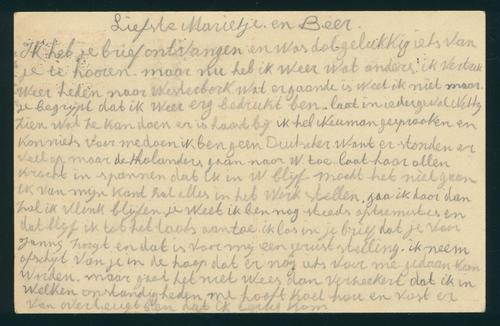 Liefste Marietje en Beer.
Ik heb je brief ontvangen en was dolgelukkig iets van
je te hooren. maar nu heb ik weer wat anders. ik vertrek
weer heden naar Westerbork wat er gaande is weet ik niet maar
je begrijpt dat ik weer erg bedrukt ben. laat in iedergeval Netty
zien wat ze kan doen er is haast bij ik heb Neuman gesprooken en
kon niets voor me doen ik ben geen Duitscher want er stonden er
veel op maar de Holanders gaan naar W toe. laat haar allen
kracht in spannen dat ik in W blijf mocht het niet gaan
ik van mijn kant zal alles in het werk stellen. ga ik door dan
zal ik flink blijven je weet ik ben nog steeds optiemisties en
dat blijf ik tot het laats aan toe. ik las in je brief dat je voor
zorgt en dat is voor mij een gerust stelling. ik neem
afschijt van je in de hoop dat er nog iets voor me gedaan kan
worden. maar gaat het niet wees dan verzekert dat ik in
welken omstandigheden me hooft koel hou en vast er
van overtuigt ben dat ik terug kom